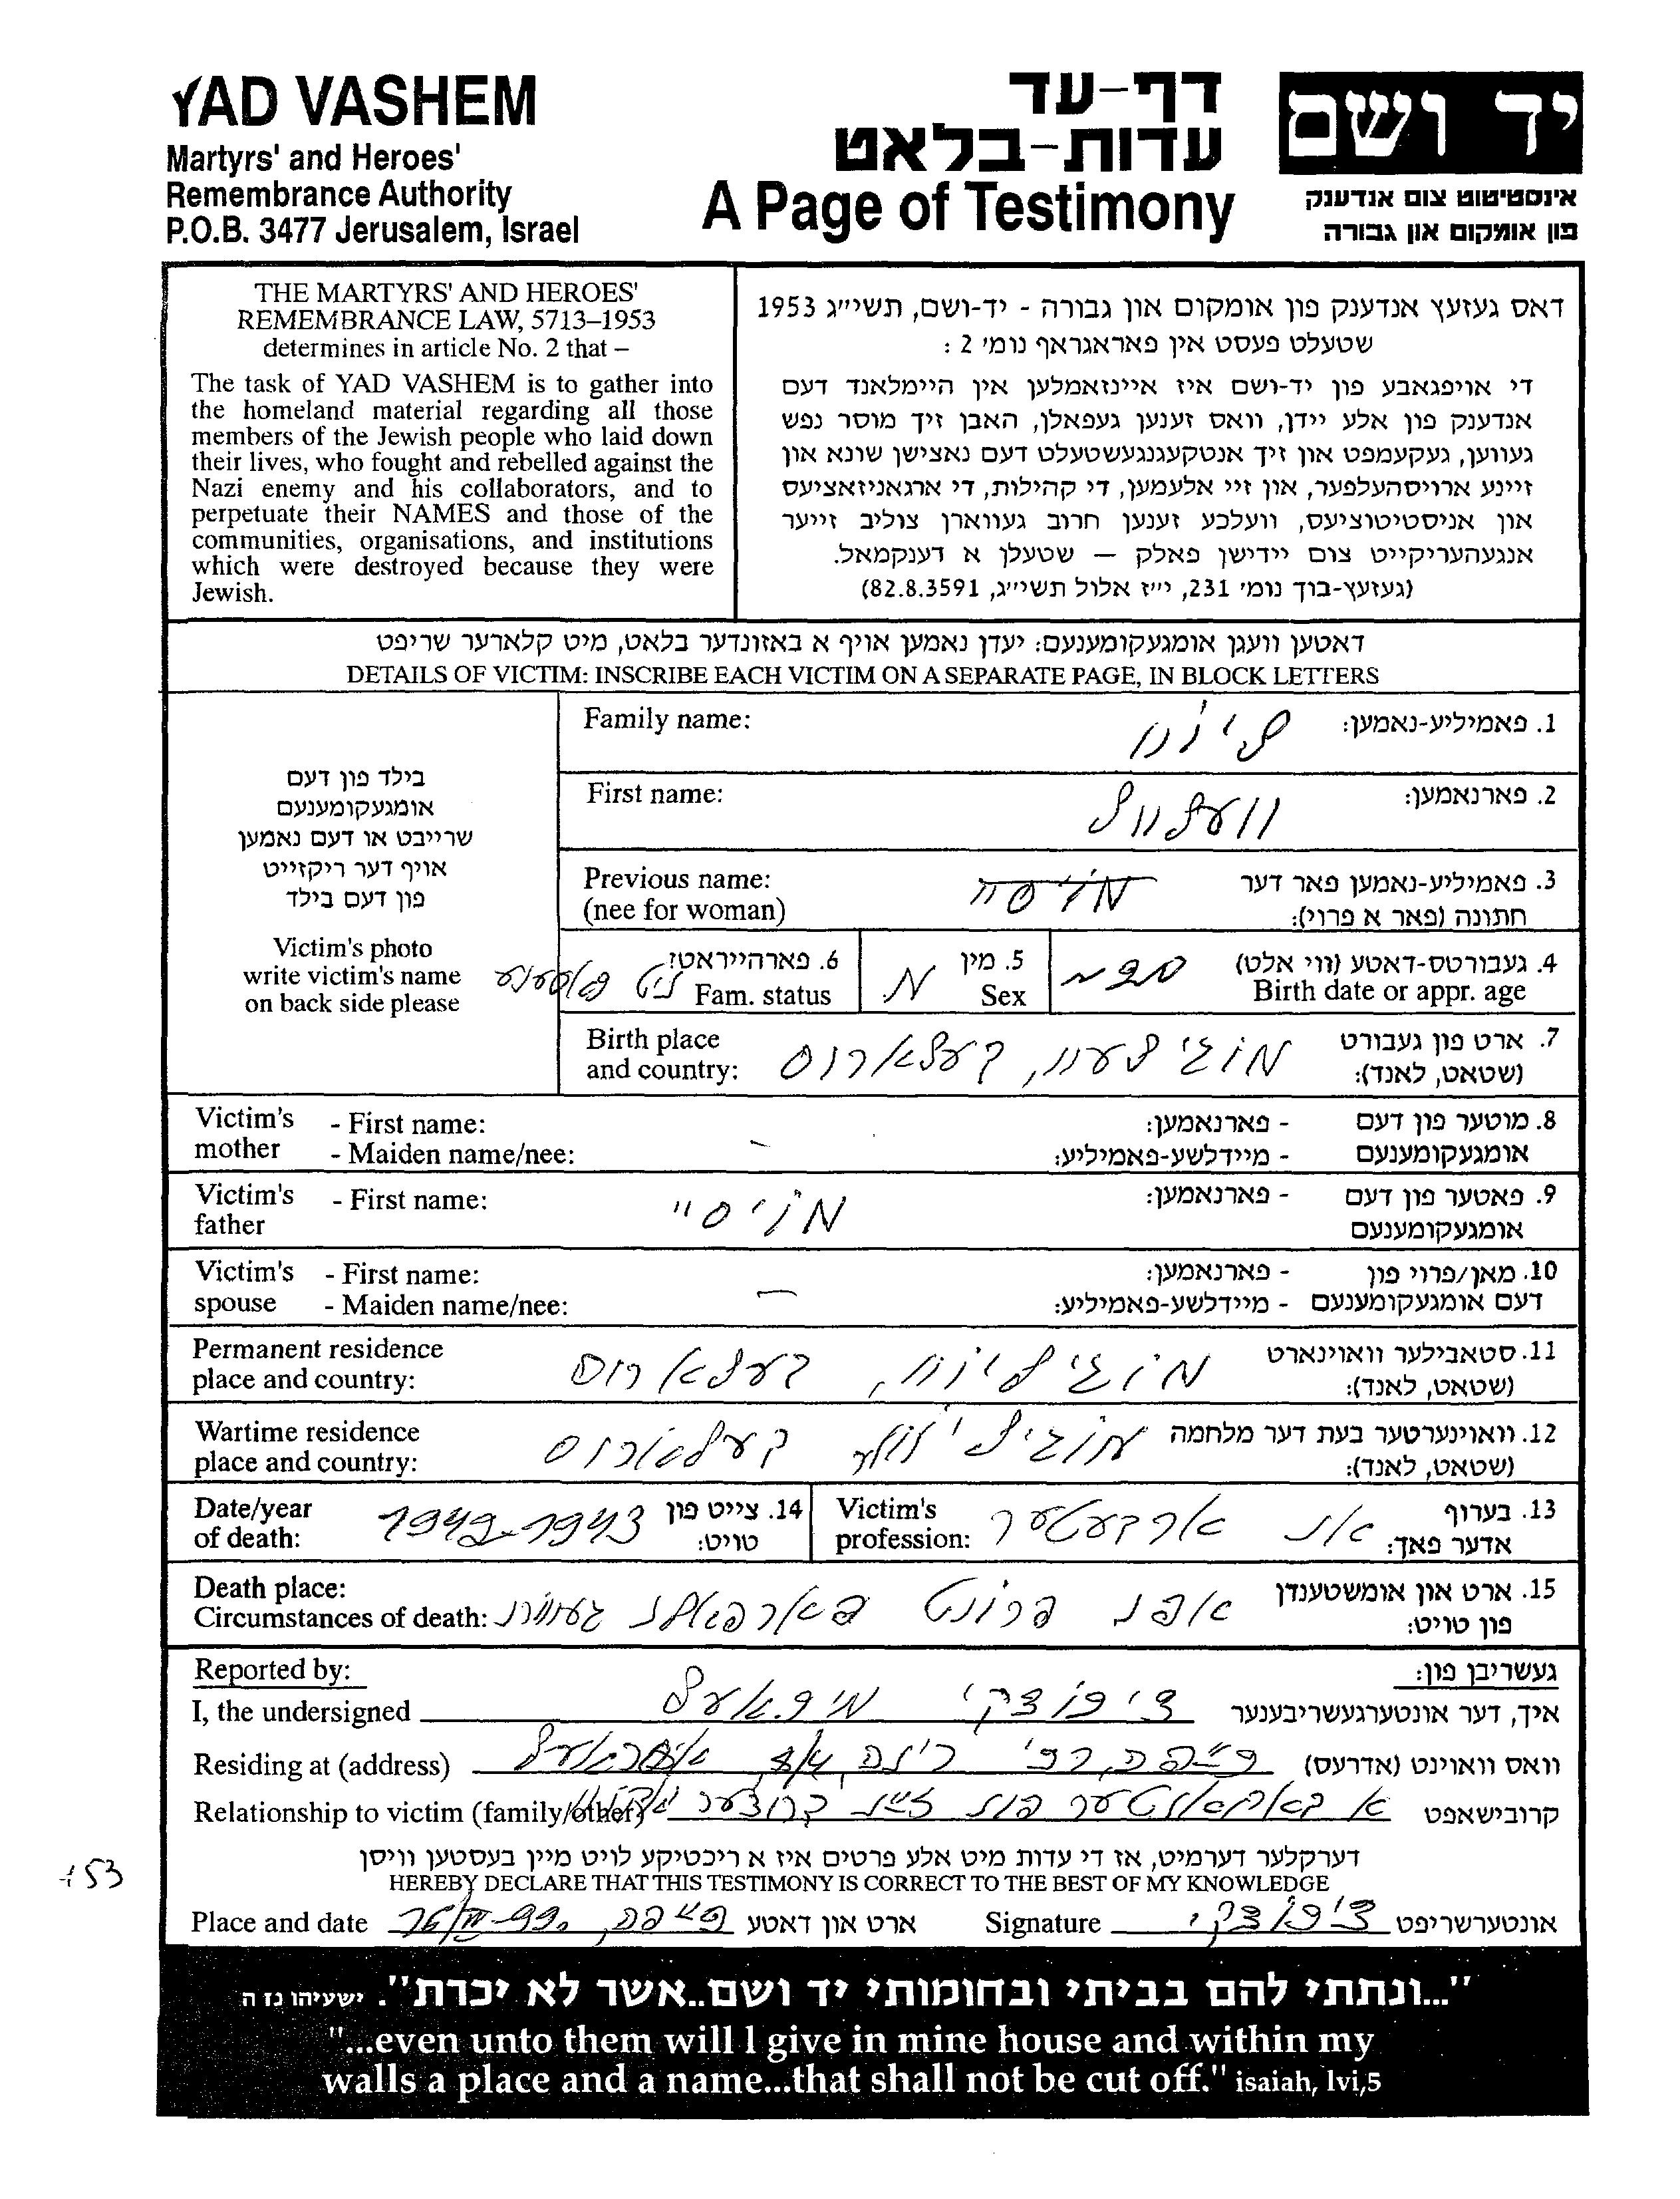 YAD VASHEM
Martyrs' and Heroes'
Remembrance Authority
P.O.B. 3477 Jerusalem, Israel
דף-עד
עדות-בלאט
A Page of Testimony
יד ושם
אינסטיטוט צום אנדענק
פון אומקום און גבורה
THE MARTYRS' AND HEROES'
REMEMBRANCE LAW, 5713–1953
determines in article No. 2 that –
The task of YAD VASHEM is to gather into
the homeland material regarding all those
members of the Jewish people who laid down
their lives, who fought and rebelled against the
Nazi enemy and his collaborators, and to
perpetuate their NAMES and those of the
communities, organisations, and institutions
which were destroyed because they were
Jewish.
דאס געזעץ אנדענק פון אומקום און גבורה - יד-ושם, תשי״ג 1953
שטעלט פעסט אין פאראגראף נומ׳ 2 :
די אויפגאבע פון יד-ושם איז איינזאמלען אין היימלאנד דעם
אנדענק פון אלע יידן, וואס זענען געפאלן, האבן זיך מוסר נפש
געווען, געקעמפט און זיך אנטקעגנגעשטעלט דעם נאצישן שונא און
זיינע ארויסהעלפער, און זיי אלעמען, די קהילות, די ארגאניזאציעס
און אניסטיטוציעס, וועלכע זענען חרוב געווארן צוליב זייער
אנגעהעריקייט צום יידישן פאלק — שטעלן א דענקמאל.
(געזעץ-בוך נומ׳ 231, י״ז אלול תשי״ג, 82.8.3591)
דאטען וועגן אומגעקומענעם: יעדן נאמען אויף א באזונדער בלאט, מיט קלארער שריפט
DETAILS OF VICTIM: INSCRIBE EACH VICTIM ON A SEPARATE PAGE, IN BLOCK LETTERS
בילד פון דעם
אומגעקומענעם
שרייבט או דעם נאמען
אויף דער ריקזייט
פון דעם בילד
Victim's photo
write victim's name
on back side please
Family name: 1. פאמיליע-נאמען:
First name: וועלוול 2. פארנאמען:
Previous name: 3. פאמיליע-נאמען פאר דער
(nee for woman) חתונה (פאר א פרוי):
4. געבורטס-דאטע (ווי אלט)
Birth date or appr. age
5. מין
Sex מ
6. פארהייראט?
Fam. status ניט
Birth place 7. ארט פון געבורט
and country: (שטאט, לאנד): בעלארוס
Victim's - First name: - פארנאמען: 8. מוטער פון דעם
mother - Maiden name/nee: – - מיידלשע-פאמיליע: אומגעקומענעם
Victim's - First name: מויסיי - פארנאמען: 9. פאטער פון דעם
father אומגעקומענעם
Victim's - First name: - פארנאמען: 10. מאן/פרוי פון
spouse - Maiden name/nee: – - מיידלשע-פאמיליע: דעם אומגעקומענעם
Permanent residence 11. סטאבילער וואוינארט
place and country: מוגיליוו, בעלארוס (שטאט, לאנד):
Wartime residence 12. וואוינערטער בעת דער מלחמה
place and country: מוגיליוו בעלארוס (שטאט, לאנד):
Date/year 14. צייט פון
of death: 1942-1943 טויט:
Victim's 13. בערוף
profession: ארבעטער אדער פאך:
Death place: 15. ארט און אומשטענדן
Circumstances of death: אפן פרונט פארפאלן געווארן פון טויט:
Reported by: געשריבן פון:
I, the undersigned איך, דער אונטערגעשריבענער
Residing at (address) וואס וואוינט (אדרעס)
Relationship to victim (family/other) א באקאנטער פון קרובישאפט
דערקלער דערמיט, אז די עדות מיט אלע פרטים איז א ריכטיקע לויט מיין בעסטען וויסן
HEREBY DECLARE THAT THIS TESTIMONY IS CORRECT TO THE BEST OF MY KNOWLEDGE
Place and date ארט און דאטע Signature אונטערשריפט
153
"...ונתתי להם בביתי ובחומותי יד ושם..אשר לא יכרת". ישעיהו נז ה
"...even unto them will I give in mine house and within my
walls a place and a name...that shall not be cut off." isaiah, lvi,5